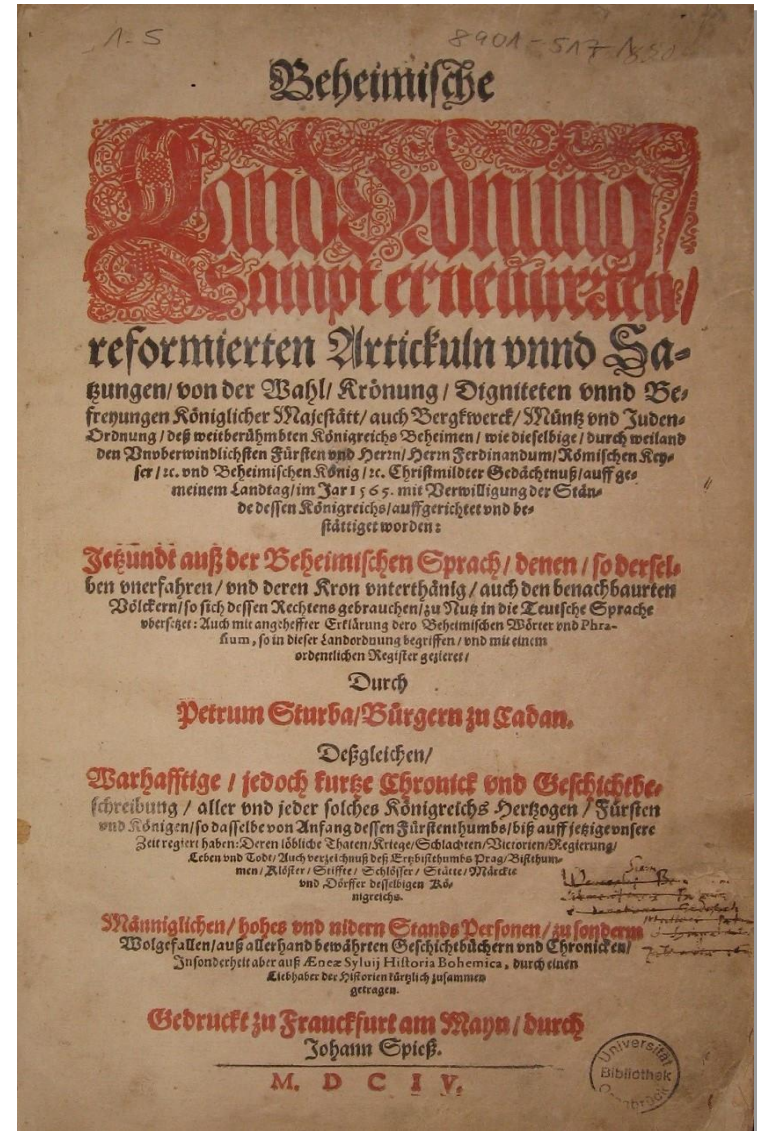 1-5
8901-517-1
Beheimische
Land Ordnung/
Sampt ernewerten/
reformierten Artickuln vnnd Sa-
tzungen/ von der Wahl/ Krönung/ Digniteten vnnd Be-
freyungen Königlicher Majestätt/ auch Bergkwerck/ Müntz vnd Juden-
Ordnung/ deß weitberühmbten Königreichs Beheimen/ wie dieselbige/ durch weiland
den Vnvberwindlichsten Fürsten vnd Herrn/ Herrn Ferdinandum/ Römischen Key-
ser/ ꝛc. vnd Beheimischen König/ ꝛc. Christmildter Gedächtnuß/ auff ge-
meinem Landtag/ im Jar 1565. mit Verwilligung der Stän-
de dessen Königreichs/ auffgerichtet vnd be-
stättiget worden:
Jetzundt auß der Beheimischen Sprach/ denen/ so dersel-
ben vnerfahren/ vnd deren Kron vnterthänig/ auch den benachbaurten
Völckern/ so sich dessen Rechtens gebrauchen/ zu Nutz in die Teutsche Sprache
vbersetzet: Auch mit angeheffter Erklärung dero Beheimischen Wörter vnd Phra-
sium, so in dieser Landordnung begriffen/ vnd mit einem
ordentlichen Register gezieret/
Durch
Petrum Sturba/ Bürgern zu Cadan.
Deßgleichen/
Warhafftige/ jedoch kurtze Chronick vnd Geschichtbe-
schreibung/ aller vnd jeder solches Königreichs Hertzogen/ Fürsten
vnd Königen/ so dasselbe von Anfang dessen Fürstenthumbs/ biß auff jetzige vnsere
Zeit regiert haben: Deren löbliche Thaten/ Kriege/ Schlachten/ Victorien/ Regierung/
Leben vnd Todt/ Auch verzeichnuß deß Ertzbisthumbs Prag/ Bisthum-
men/ Klöster/ Stiffte/ Schlösser/ Stätte/ Märckte
vnd Dörffer desselbigen Kö-
nigreichs.
Männiglichen/ hohes vnd nidern Stands Personen/ zu sonderm
Wolgefallen/ auß allerhand bewährten Geschichtbüchern vnd Chronicken/
Insonderheit aber auß Æneæ Syluij Historia Bohemica, durch einen
Liebhaber der Historien kürtzlich zusammen
getragen.
Gedruckt zu Franckfurt am Mayn/ durch
Johann Spieß.
M. D C I V.
Universität
Bibliothek
Osnabrück